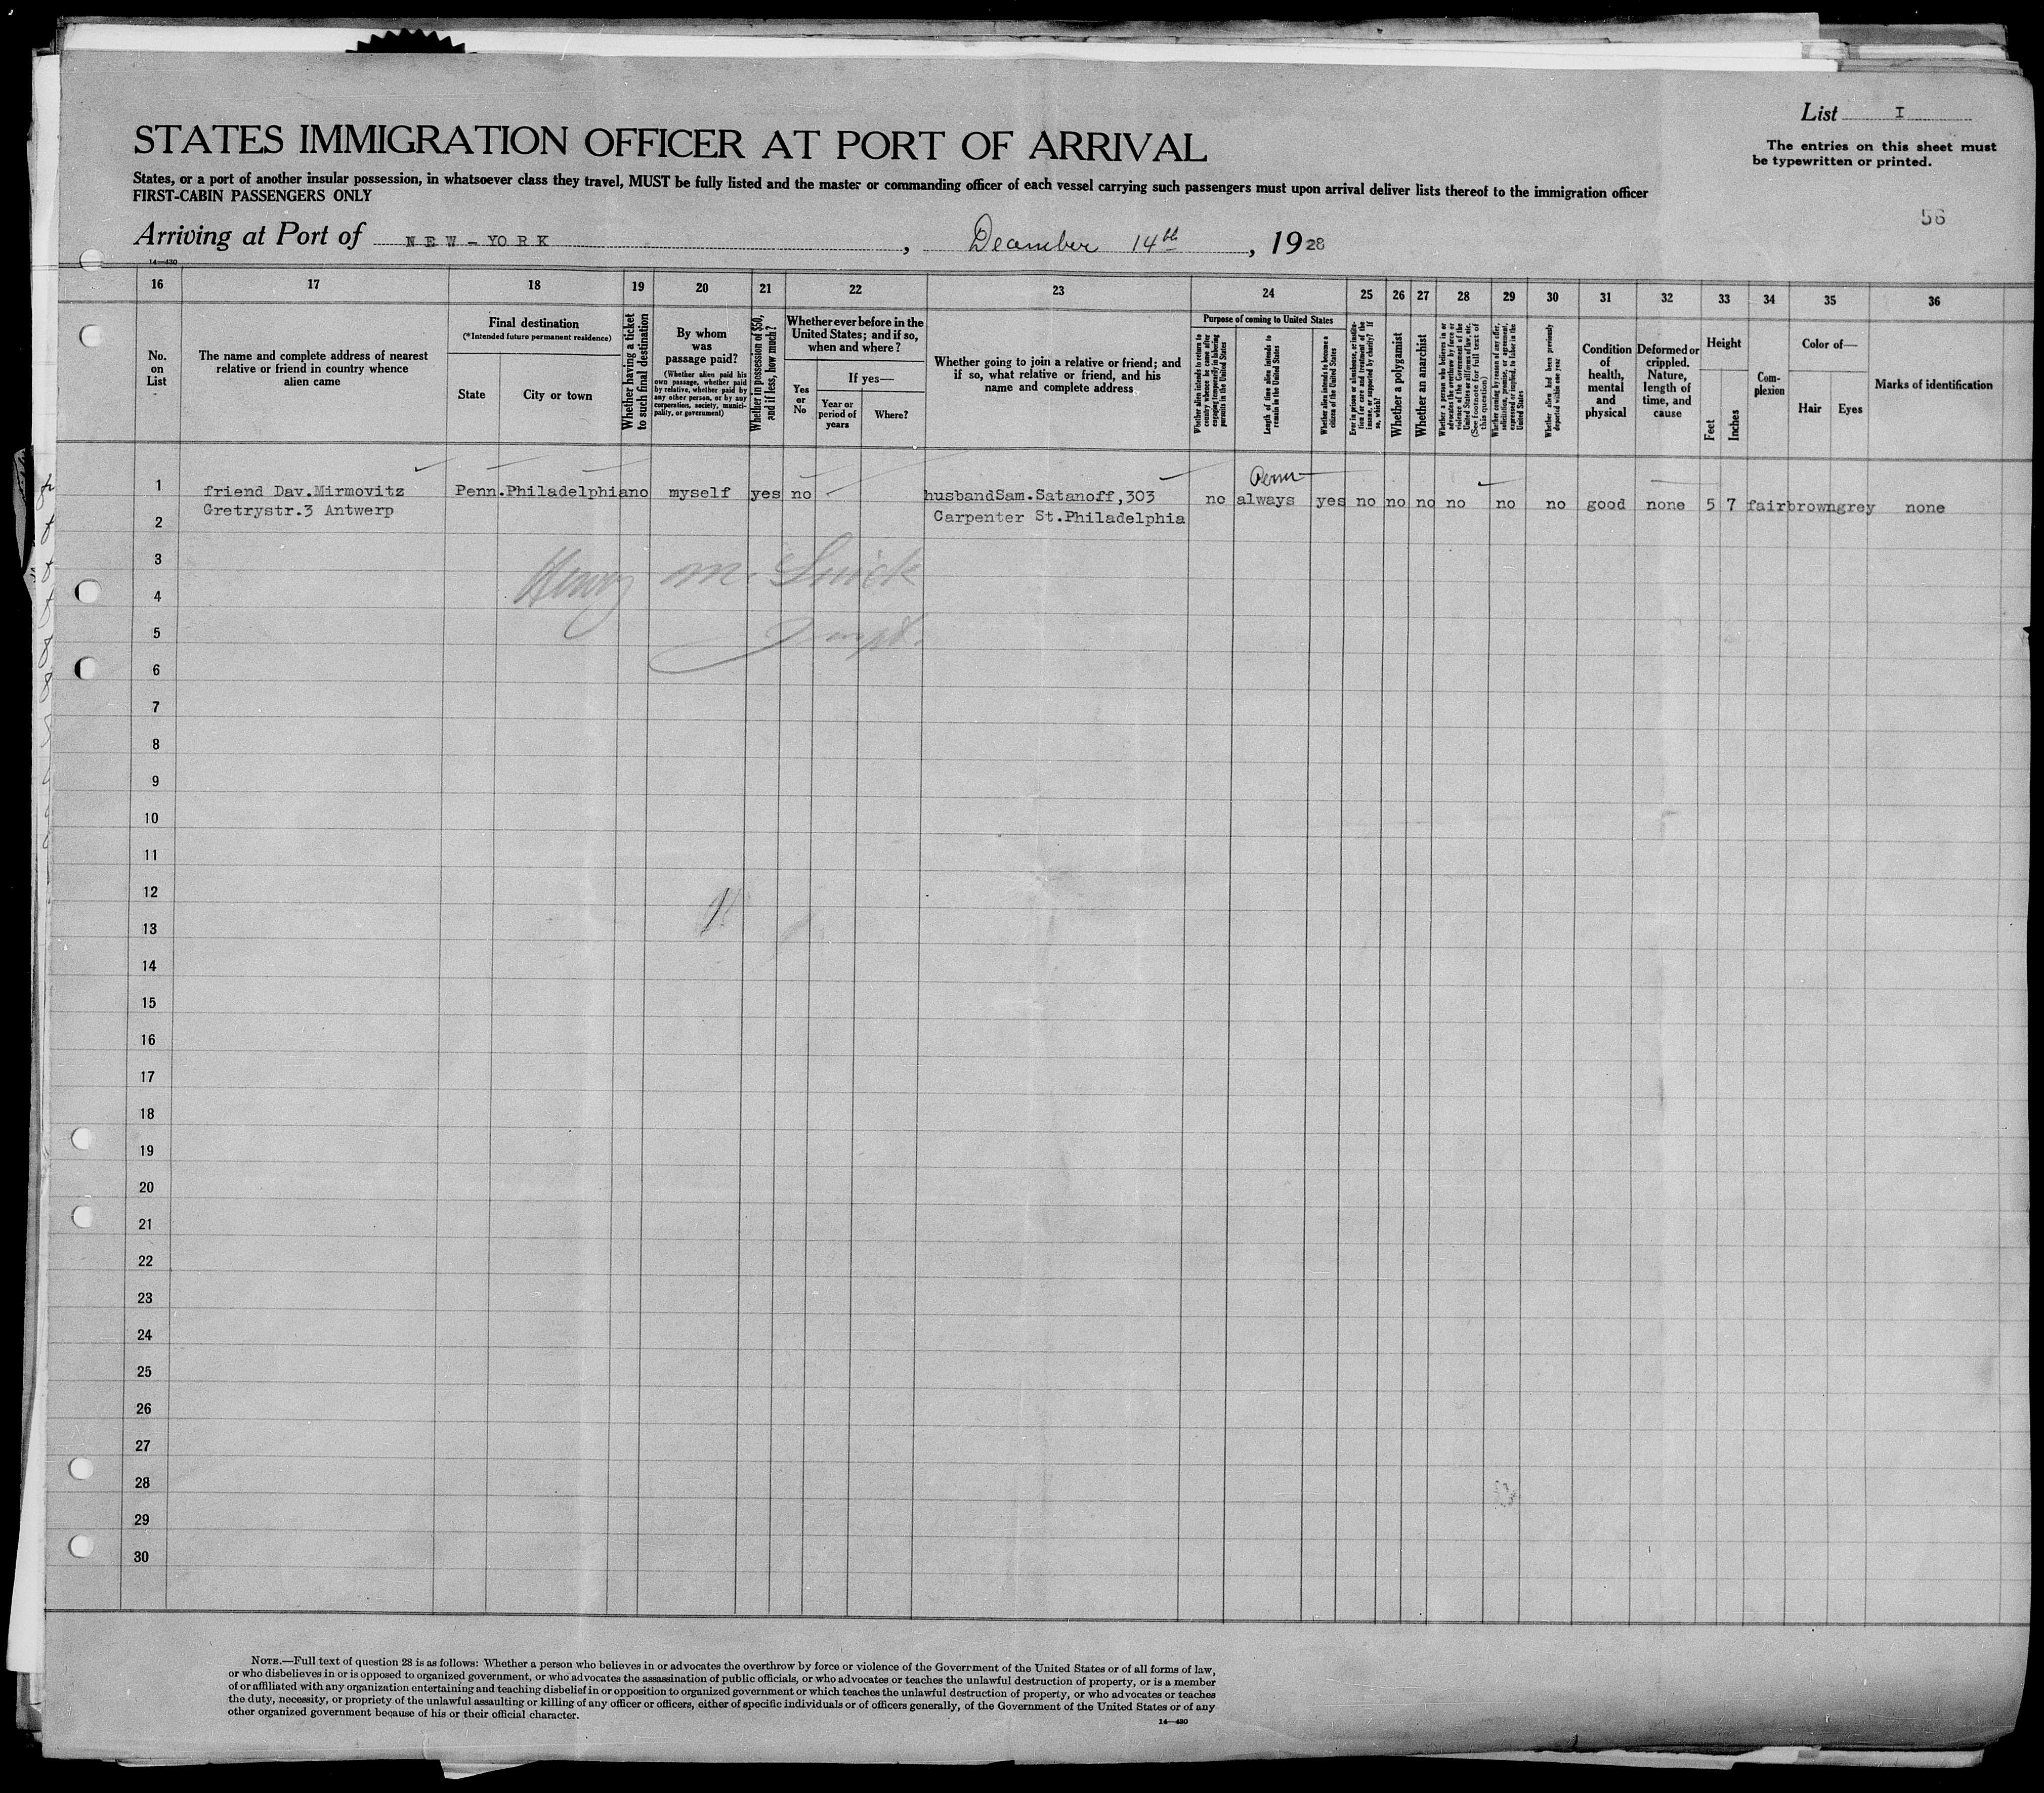 List I
The entries on this sheet must
be typewritten or printed.
STATES IMMIGRATION OFFICER AT PORT OF ARRIVAL
States, or a port of another insular possession, in whatsoever class they travel, MUST be fully listed and the master or commanding officer of each vessel carrying such passengers must upon arrival deliver lists thereof to the immigration officer
FIRST-CABIN PASSENGERS ONLY
56
Arriving at Port of NEW-YORK, December 14th, 1928
14—430
16 17 18 19 20 21 22 23 24 25 26 27 28 29 30 31 32 33 34 35 36
No.
on
List
The name and complete address of nearest
relative or friend in country whence
alien came
Final destination
(*Intended future permanent residence)
State
City or town
Whether having a ticket
to such final destination
By whom
was
passage paid?
(Whether alien paid his
own passage, whether paid
by relative, whether paid by
any other person, or by any
corporation, society, munici-
pality, or government)
Whether in possession of $50,
and if less, how much?
Whether ever before in the
United States; and if so,
when and where?
Yes
or
No
If yes—
Year or
period of
years
Where?
Whether going to join a relative or friend; and
if so, what relative or friend, and his
name and complete address
Purpose of coming to United States
Whether alien intends to return to
country whence he came after
engaging temporarily in laboring
pursuits in the United States
Length of time alien intends to
remain in the United States
Whether alien intends to become a
citizen of the United States
Ever in prison or almshouse, or institu-
tion for care and treatment of the
insane, or supported by charity? If
so, which?
Whether a polygamist
Whether an anarchist
Whether a person who believes in or
advocates the overthrow by force or
violence of the Government of the
United States or all forms of law, etc.
(See footnote for full text of
this question)
Whether coming by reason of any offer,
solicitation, promise, or agreement,
expressed or implied, to labor in the
United States
Whether alien had been previously
deported within one year
Condition
of
health,
mental
and
physical
Deformed or
crippled.
Nature,
length of
time, and
cause
Height
Feet
Inches
Com-
plexion
Color of—
Hair
Eyes
Marks of identification
Penn
1 friend Dav.Mirmovitz Penn. Philadelphia no myself yes no husband Sam.Satanoff,303 no always yes no no no no no no good none 5 7 fair brown grey none
Gretrystr.3 Antwerp Carpenter St.Philadelphia
2
3
Henry M.
4
5
6
7
8
9
10
11
12
13
14
15
16
17
18
19
20
21
22
23
24
25
26
27
28
29
30
NOTE.—Full text of question 28 is as follows: Whether a person who believes in or advocates the overthrow by force or violence of the Government of the United States or of all forms of law,
or who disbelieves in or is opposed to organized government, or who advocates the assassination of public officials, or who advocates or teaches the unlawful destruction of property, or is a member
of or affiliated with any organization entertaining and teaching disbelief in or opposition to organized government or which teaches the unlawful destruction of property, or who advocates or teaches
the duty, necessity, or propriety of the unlawful assaulting or killing of any officer or officers, either of specific individuals or of officers generally, of the Government of the United States or of any
other organized government because of his or their official character.
14—430